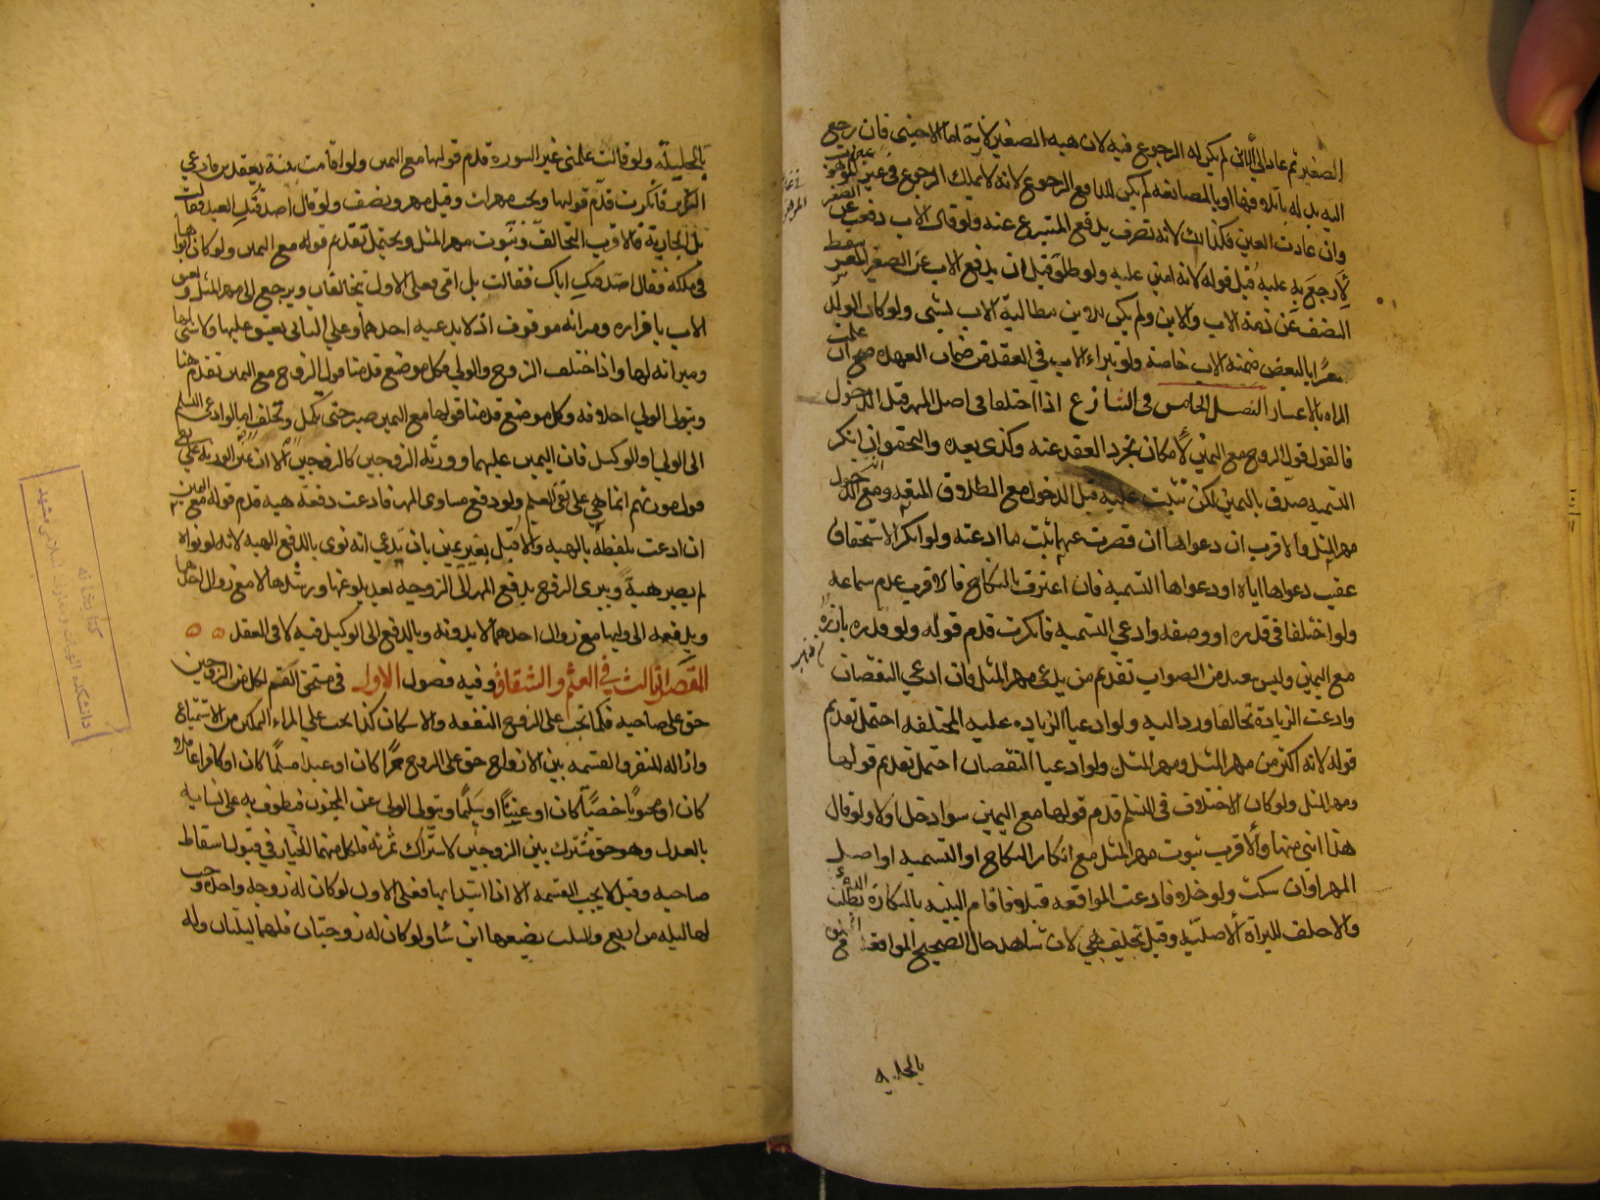 الصغير ثم عاد الى الثاني لم يكن له الرجوع فيه لان هبة الصغير لازمة اما الاجنبي فان رجع
اليه بدله بالتلافها او بالمصانعه لم يكن للدافع الرجوع لانه لا يملك الرجوع في غير الموهوب
وان عادت العين فكذلك لانه تصرف بدفع المتبرع عنه ولو قال الاب دفعت عن الصغير
لأرجع به عليه قبل قوله لانه امين عليه ولو طلق قبل ان يدفع الاب عن الصغير المعسر سقط
النصف عن ذمة الاب والابن ولم يكن للابن مطالبة الاب بشي ولو كان الولد
معسرا بالبعض ضمنه الاب خاصة ولو تبراء الاب في العقد من ضمان العهدة صح ان علمت
المراه بالاعسار الفصل الخامس في التنازع اذا اختلفا في اصل المهر قبل الدخول
فالقول قول الزوج مع اليمين لامكان تجرد العقد عنه وكذي بعده والتحقيق ان انكر
التسمية صدق باليمين لكن تثبت عليه قبل الدخول مع الطلاق المتعه ومع الدخول
مهر المثل والاقرب ان دعواها ان قصرت عنهما ثبت ما ادعته ولو انكر الاستحقاق
عقيب دعواها اياه او دعواها التسمية فان اعترف بالنكاح فالاقرب عدم سماعه
ولو اختلفا في قدره او وصفه او ادعي التسمية فانكرت قدم قوله ولو قدره بارزة
مع اليمين وليس ببعيد من الصواب تقديم من يدعي مهر المثل فان ادعي النقصان
وادعت الزيادة تحالفا ورد اليه ولو ادعيا الزياده عليه المختلفه احتمل تقديم
قوله لانه اكثر من مهر المثل ومهر المثل ولو ادعيا النقصان احتمل تقديم قولها
ومهر المثل ولو كان الاختلاف في التسليم قدم قولها مع اليمين سوا دخل اولا ولو قال
هذا ابني منها والاقرب ثبوت مهر المثل مع انكار النكاح او التسمية او اصل
المهر او ان سكت ولو خلا فادعت المواقعه قبلا فاقام البينه بالبكارة بطلت الدعوى
والا حلف للبراة الاصلية وقيل تحلف هي لان شاهد حال الصحيح المواقعة
بالحلية
بالحلية ولو قالت علمني غير السورة قدم قولها مع اليمين ولو اقامت بينة بعقدين فادعي
التكرار فانكرت قدم قولها ويجب مهران وقيل مهر ونصف ولو قال اصدقتك العبد فقالت
بل الجارية فالاقرب التحالف وثبوت مهر المثل ويحتمل تقديم قوله مع اليمين ولو كان ابواها
في ملكه فقال اصدقتك اباك فقالت بل امي فعلى الاول يتحالفان ويرجع الى مهر المثل ويعتق
الاب باقراره وميراثه موقوف اذ لا يدعيه احدهما وعلي الثاني يعتق عليها ولا شي لها
وميراثه لها واذا اختلف الزوج والولي فكل موضع قدمنا قول الزوج مع اليمين تقدم هنا
ويتولى الولي احلافه وكل موضع قدمنا قولها مع اليمين صبر حتى تكمل وتحلف اما لو ادعى التسليم
الى الولي او الوكيل فان اليمين عليهما وورثة الزوجين كالزوجين الا ان يمين الورثه علي نفي
قول مورثهم انما هي على نفي العلم ولو دفع مساوى المهر فادعت دفعه هبة قدم قوله مع اليمين
ان ادعت بلفظه بالهبه والاقبل بغير يمين بان يدعي انه نوى بالدفع الهبة لانه لو نواه
لم يصر هبة ويبرى الزوج بدفع المهر الى الزوجه بعد بلوغها ورشدها لا مع زوال احدهما
وبدفعه الى وليها مع زوال احدهما لا بدونه وبالدفع الى الوكيل فيه لا في العقد
المقصد الثالث في القسم والشقاق وفيه فصول الاول في مستحق القسم لكل من الزوجين
حق على صاحبه فكما تجب على الزوج النفقه والاسكان كذا يجب علي المراه التمكين من الاستمتاع
وازالة المنفر والقسمه بين الازواج حق على الزوج حرا كان او عبدا مسلما كان او كافرا عاقلا
كان او مجنونا خصيا كان او عنينا او سليما ويتولى الولي عن المجنون فيطوف به على نسايه
بالعدل وهو حق مشترك بين الزوجين لاشتراك ثمرته فلكل منهما الخيار في قبول اسقاط
صاحبه وقيل لا يجب القسمه الا اذا ابتدا بها فعلى الاول لو كان له زوجة واحدة وجب
لها ليله من اربع والثلث يضعها اين شا ولو كان له زوجتان فلهما ليلتان وله
كتابخانه
دانشكده الهيات و معارف اسلامى مشهد